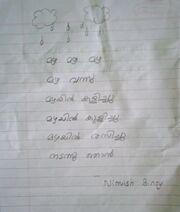 മഴ മഴ മഴ
മഴ വന്നു
മഴയിൽ കുളിച്ചു
മഴയിൽ കുളിച്ചു
മഴയിൽ രസിച്ചു
നടന്നു ഞാൻ
Nimish Binoy